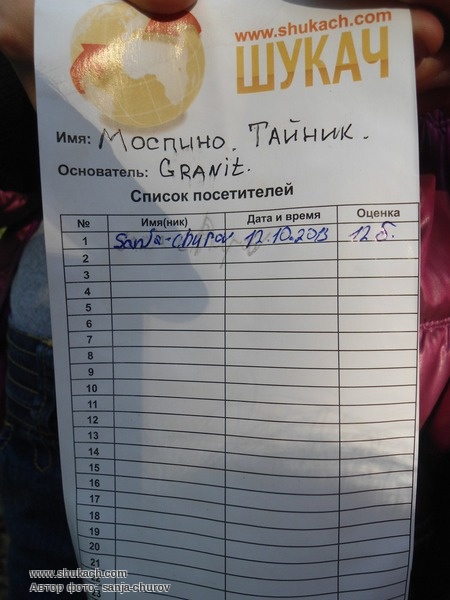 www.shukach.com
ШУКАЧ
Имя: Моспино. Тайник.
Основатель: GRANit.
Список посетителей
№ Имя(ник) Дата и время Оценка
1 Sanja-churov 12.10.2013 12 б.
2
3
4
5
6
7
8
9
10
11
12
13
14
15
16
17
18
19
20
21
www.shukach.com
Автор фото: sanja-churov